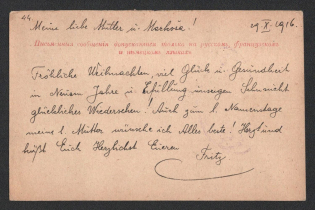 44
Meine liebe Mutter u. Mariechen! 29. X. 1916.
Письменныя сообщенія допускаются только на русскомъ, французскомъ
и нѣмецкомъ языкахъ
Fröhliche Weihnachten, viel Glück u. Gesundheit
im Neuen Jahre u. Erfüllung unserer Sehnsucht
glückliches Wiedersehen! Auch zum l. Namenstage
meine l. Mutter wünsche ich Alles beste! Herzt und
küßt Euch Herzlichst Euer
Fritz